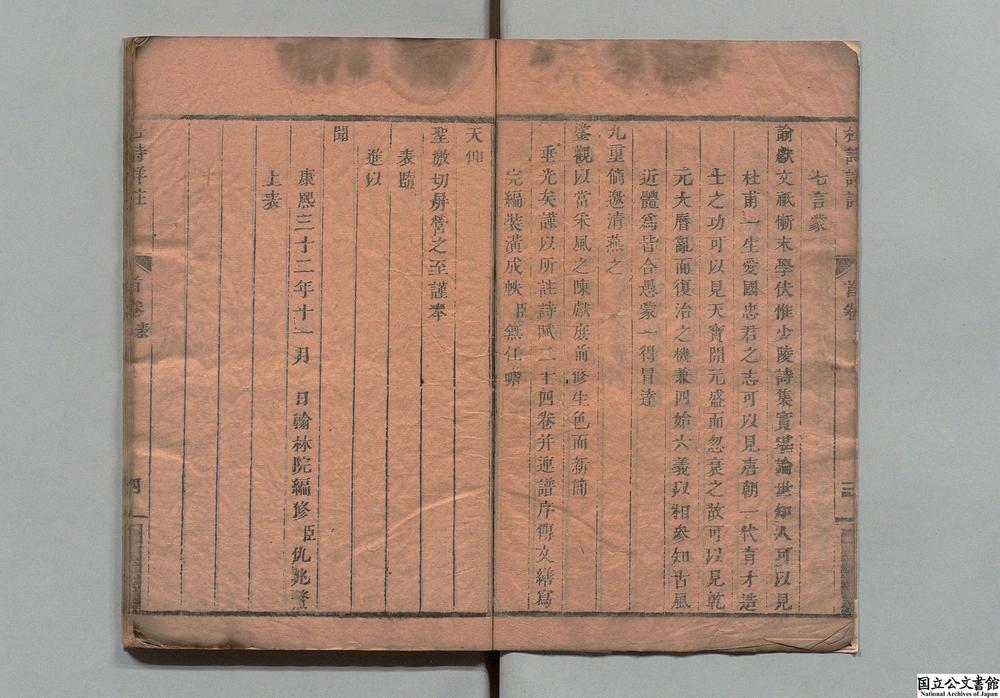 杜詩詳註
首卷
三
七言蒙
諭獻文祇慚末學伏惟少陵詩集實堪論世知人可以見
杜甫一生愛國忠君之志可以見唐朝一代育才造
士之功可以見天寶開元盛而忽衰之故可以見乾
元大曆亂而復治之機兼四始六義以相參知古風
近體為皆合愚蒙一得冒達
九重倘邀清燕之
鑒觀以當采風之陳獻庶前修生色而新簡
垂光矣謹以所註詩賦二十四卷并連譜序傳文繕寫
完編裝潢成帙臣無任瞻
天仰
聖激切屏營之至謹奉
表臨
進以
聞
康熙三十二年十一月　日翰林院編修臣仇兆鰲
上表
杜詩詳註
首卷 表
四
国立公文書館
National Archives of Japan